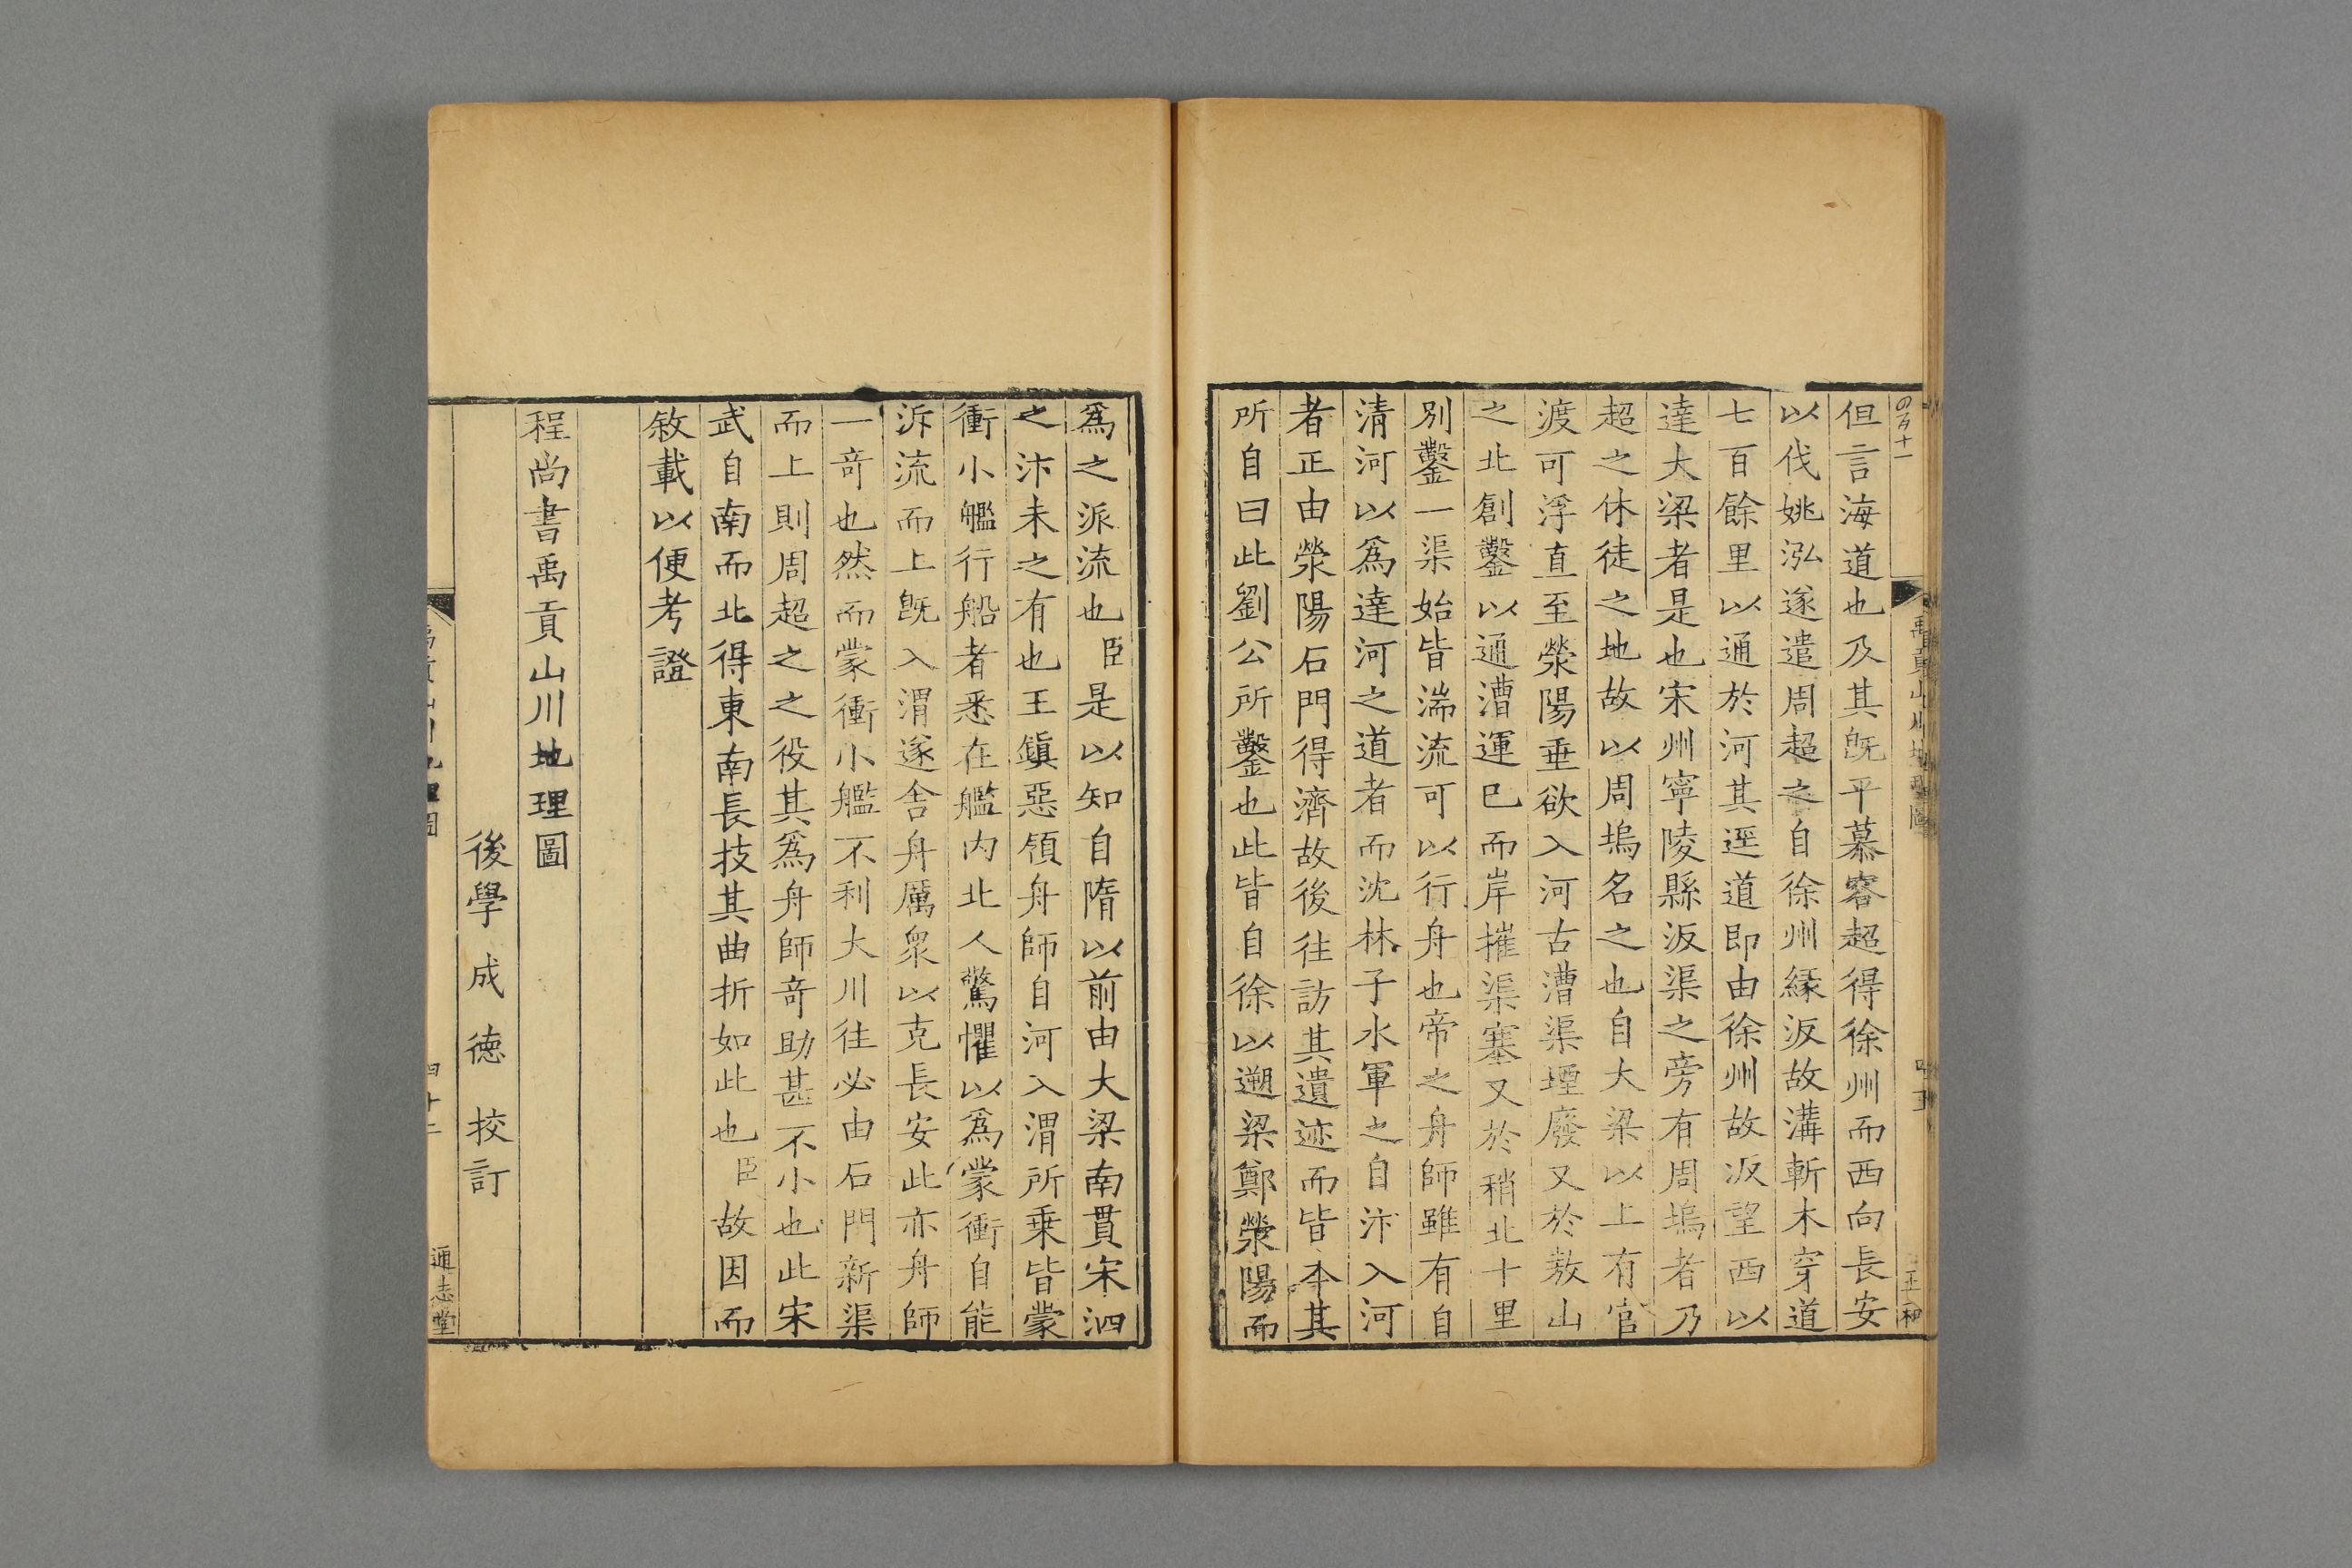 但言海道也及其旣平慕容超得徐州而西向長安
以伐姚泓遂遣周超之自徐州緣汳故溝斬木穿道
七百餘里以通於河其逕道即由徐州故汳望西以
達大梁者是也宋州寧陵縣汳渠之旁有周塢者乃
超之休徒之地故以周塢名之也自大梁以上有官
渡可浮直至滎陽垂欲入河古漕渠堙廢又於敖山
之北創鑿以通漕運已而岸摧渠塞又於稍北十里
別鑿一渠始皆湍流可以行舟也帝之舟師雖有自
清河以爲達河之道者而沈林子水軍之自汴入河
者正由滎陽石門得濟故後往訪其遺迹而皆本其
所自曰此劉公所鑿也此皆自徐以遡梁鄭滎陽而
爲之派流也臣是以知自隋以前由大梁南貫宋泗
之汴未之有也王鎮惡領舟師自河入渭所乗皆蒙
衝小艦行船者悉在艦内北人驚懼以爲蒙衝自能
泝流而上旣入渭遂舍舟厲衆以克長安此亦舟師
一竒也然而蒙衝小艦不利大川往必由石門新渠
而上則周超之之役其爲舟師竒助甚不小也此宋
武自南而北得東南長技其曲折如此也臣故因而
敘載以便考證
程尚書禹貢山川地理圖
後學成德校訂
四十二
通志堂